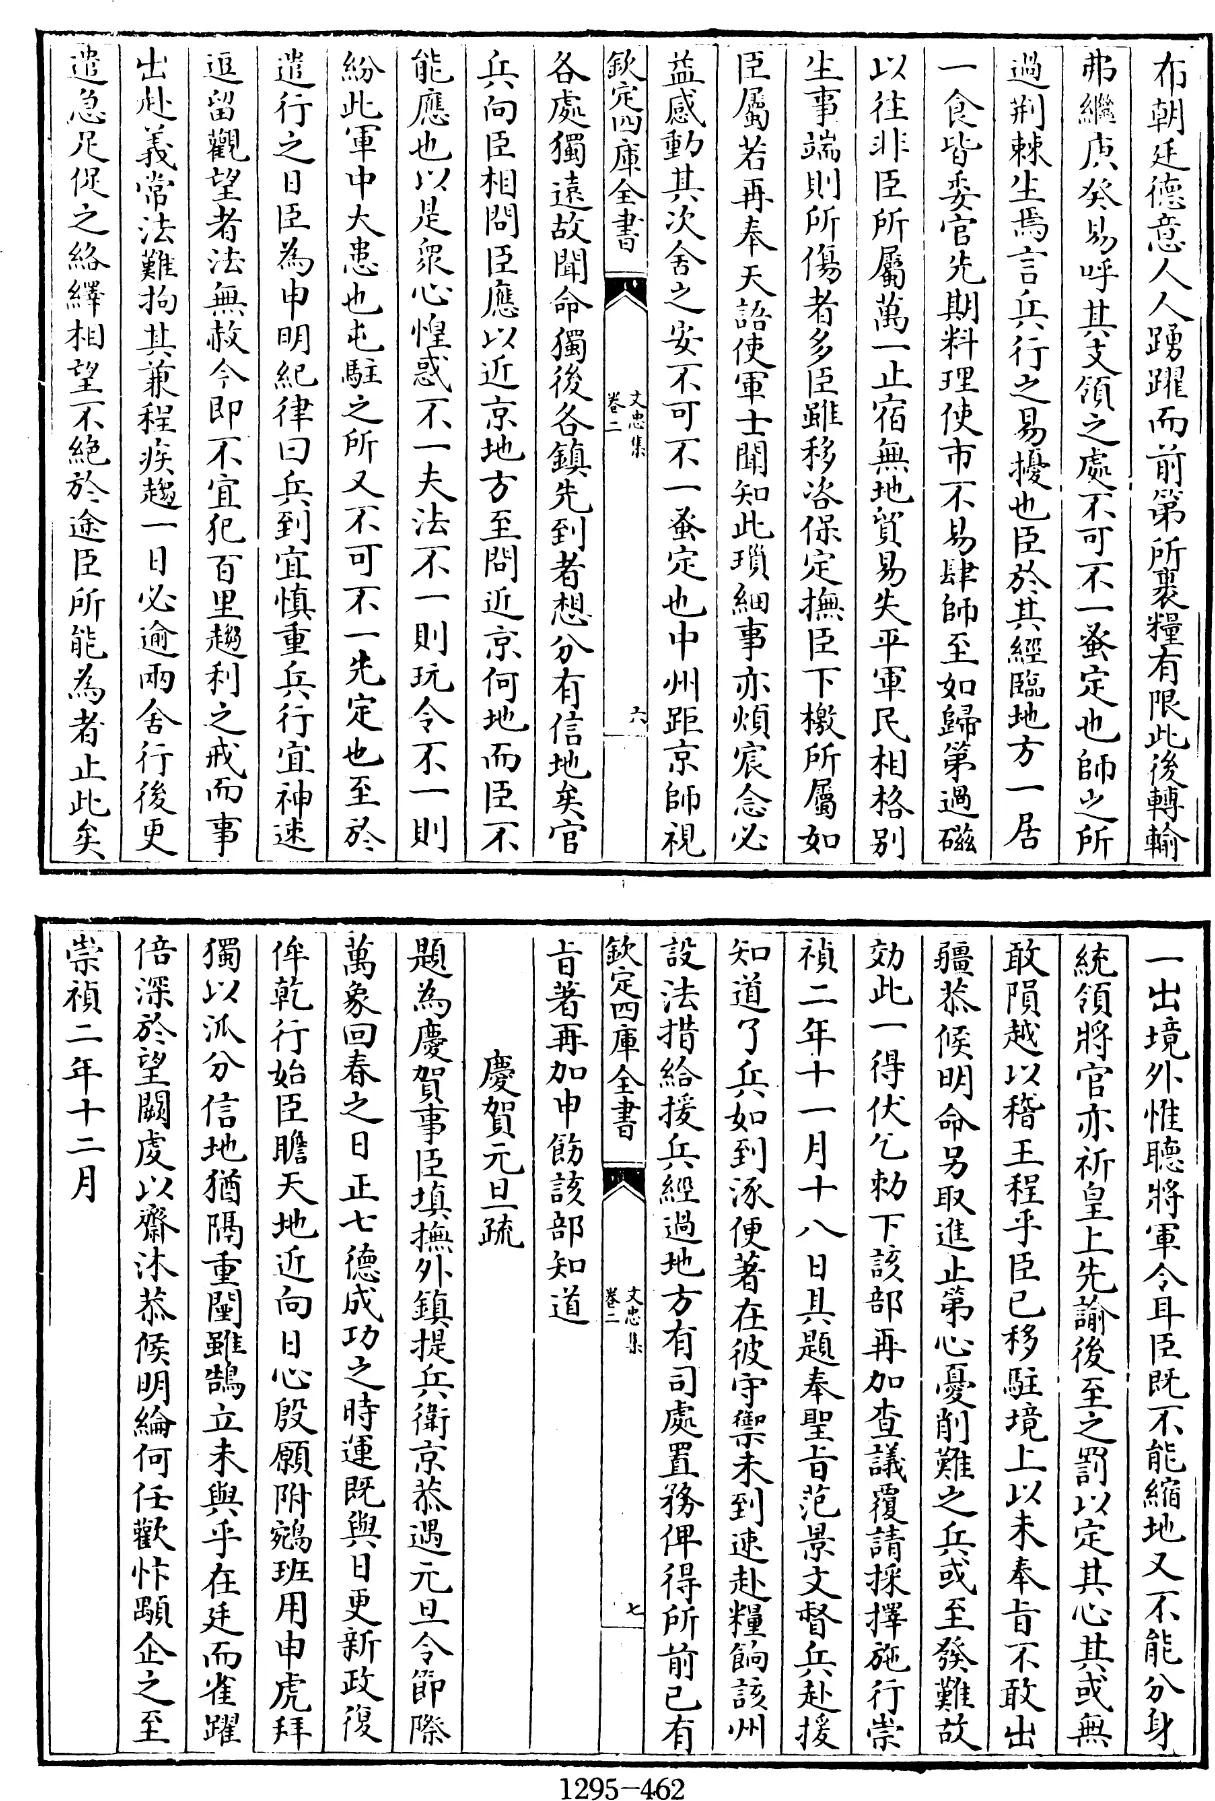 布朝廷德意人人踴躍而前第所裹糧有限此後轉輸
弗繼庚癸易呼其支領之處不可不一蚤定也師之所
過荆棘生焉言兵行之易擾也臣於其經臨地方一居
一食皆委官先期料理使市不易肆師至如歸第過磁
以往非臣所屬萬一止宿無地貿易失平軍民相格别
生事端則所傷者多臣雖移咨保定撫臣下檄所屬如
臣屬若再奉天語使軍士聞知此瑣細事亦煩宸念必
益感動其次舍之安不可不一蚤定也中州距京師視
欽定四庫全書
文忠集
卷二
六
各處獨遠故聞命獨後各鎮先到者想分有信地矣官
兵向臣相問臣應以近京地方至問近京何地而臣不
能應也以是衆心惶惑不一夫法不一則玩令不一則
紛此軍中大患也屯駐之所又不可不一先定也至於
遣行之日臣為申明紀律曰兵到宜慎重兵行宜神速
逗留觀望者法無赦今即不宜犯百里趨利之戒而事
出赴義常法難拘其兼程疾趨一日必逾兩舍行後更
遣急足促之絡繹相望不絶於途臣所能為者止此矣
一出境外惟聽將軍令耳臣既不能縮地又不能分身
統領將官亦祈皇上先諭後至之罰以定其心其或無
敢隕越以稽王程乎臣已移駐境上以未奉旨不敢出
疆恭候明命另取進止第心憂削難之兵或至發難故
効此一得伏乞勅下該部再加查議覆請採擇施行崇
禎二年十一月十八日具題奉聖旨范景文督兵赴援
知道了兵如到涿便著在彼守禦未到速赴糧餉該州
設法措給援兵經過地方有司處置務俾得所前已有
欽定四庫全書
文忠集
卷二
七
旨著再加申飭該部知道
慶賀元旦疏
題為慶賀事臣填撫外鎮提兵衛京恭遇元旦令節際
萬象回春之日正七德成功之時運既與日更新政復
侔乾行始臣瞻天地近向日心殷願附鵷班用申虎拜
獨以汛分信地猶隔重闉雖鵠立未與乎在廷而雀躍
倍深於望闕虔以齋沐恭候明綸何任歡忭顒企之至
崇禎二年十二月
1295-462